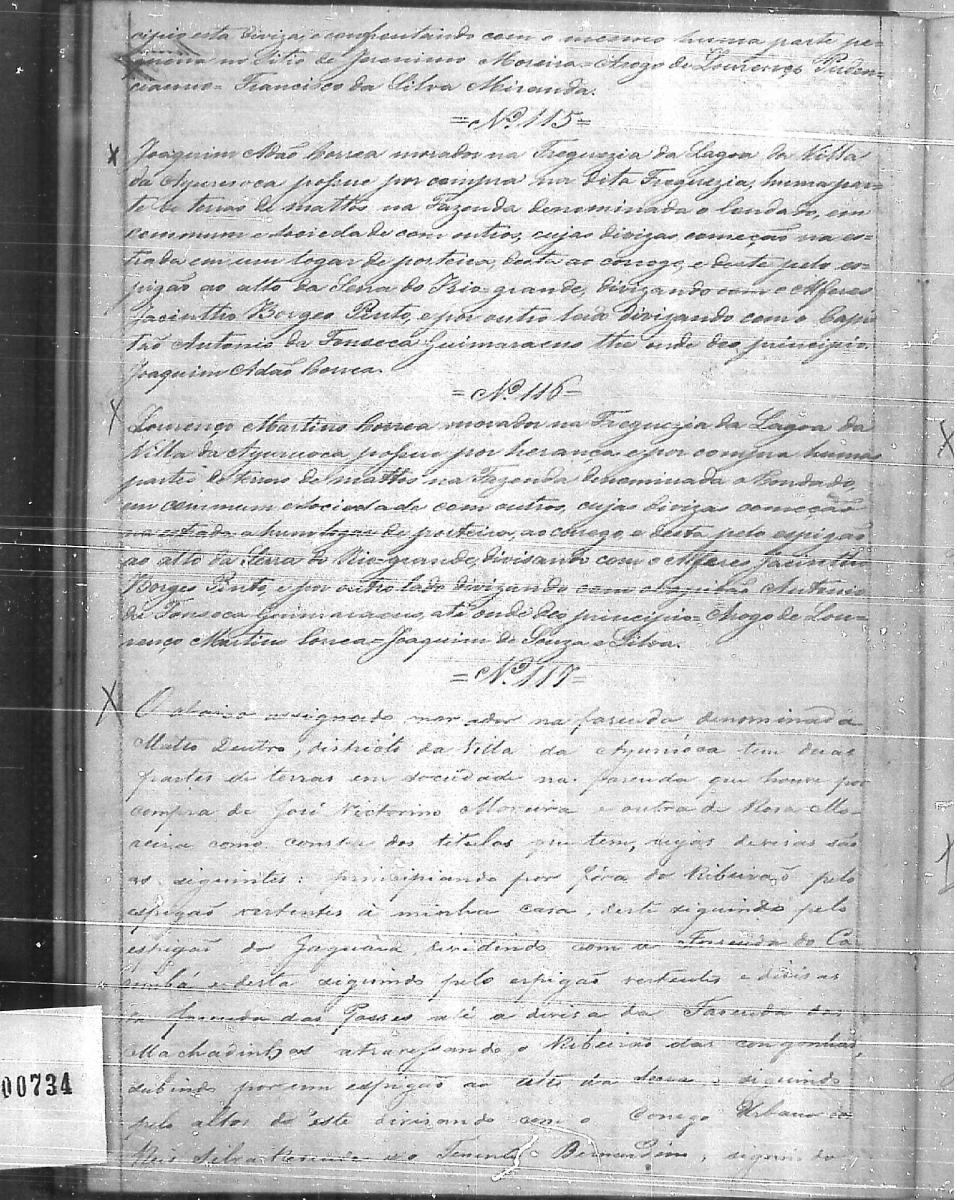 cipio esta diviza, e confrontando com o mesmo huma parte pe-
quena no Sitio de Jeronimo Moreira = Arogo de Lourenço Puden-
cianno = Francisco da Silva Miranda.
= Nº 115 =
Joaquim Adão Correa morador na Freguezia da Lagoa da Villa
da Ayuruoca possue por compra na dita Freguezia, huma par-
te de terras de mattos na Fazenda denominada o Condado, em
commum e sociedade com outros, cujas divizas começão na es-
trada em um logar de porteira, desta ao corrego, e deste pelo es-
pigão ao alto da Serra do Rio-grande, divizando com o Alferes
Jacinttho Borges Pinto, e por outro lado divizando com o Capi
tão Antonio da Fonseca Guimaraens the onde deo principio.
Joaquim Adão Correa.
= Nº 116 =
Lourenço Martins Correa morador na Freguezia da Lagoa da
Villa da Ayuruoca, possue por herança e por compra humas
partes de terras de mattos na Fazenda denominada o Condado,
em commum e sociedade com outros, cujas divizas começão
na estrada a hum logar de porteira, ao corrego e desta pelo espigão
ao alto da Serra do Rio-grande, divisando com o Alferes Jacintho
Borges Pinto, e por outro lado divizando com o Antonio
da Fonseca Guimaraens, até onde deo principio = Arogo de Lou-
renço Martins Correa = Joaquim de Souza e Silva.
= Nº 117 =
O abaixo assignado morador na fazenda denominada
Matto Dentro, districto da Villa da Ayuruoca tem duas
partes de terras em sociedade na fazenda que houve por
compra de José Victorino Moreira e outra de Rosa Mo-
reira como consta dos titulos que tem, cujas devisas são
as seguintes: principiando por fóra do Ribeirão pelo
espigão vertentes á minha casa, deste siguindo pelo
espigão do Jaguara, dividindo com a Fazenda do
e desta siguindo pelo espigão vertentes e divisas
da fazenda das Posses até a divisa da Fazenda dos
Machadinhos atravessando o Ribeirão das congonhas,
subindo por um espigão ao da Serra, siguindo
pelo altos d'éste divisando com o Conego Urbano
Reis Silva Resende e o Tenente Bernardino, siguindo
00734